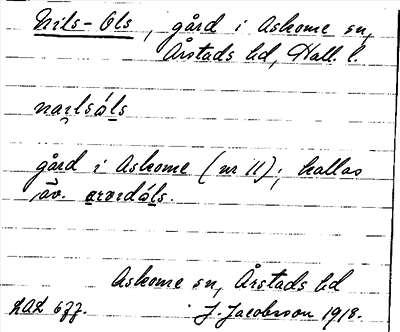 Nils-Ols, gård i Askome sn,
Årstads hd, Hall. l.
nạɪlsáls
gård i Askome (nr 11); kallas
äv.
Askome sn, Årstads hd
LAL 677. J. Jacobsson 1918.